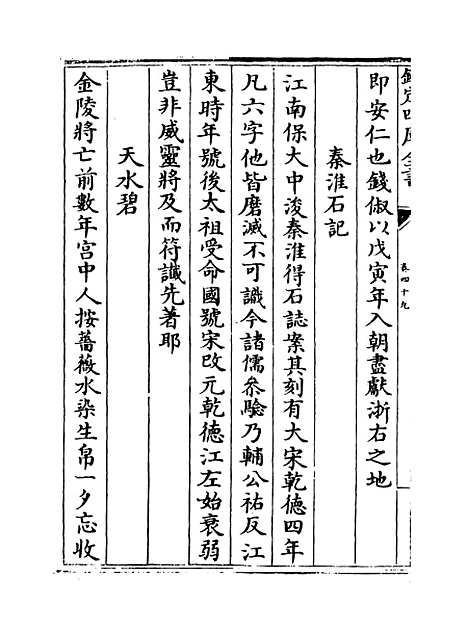 欽定四庫全書
卷四十九
即安仁也錢俶以戊寅年入朝盡獻浙右之地
秦淮石記
江南保大中浚秦淮得石誌案其刻有大宋乾德四年
凡六字他皆磨滅不可識令諸儒參驗乃輔公祐反江
東時年號後太祖受命國號宋改元乾德江左始衰弱
豈非威靈將及而符讖先著耶
天水碧
金陵將亡前數年宮中人挼薔薇水染生帛一夕忘收